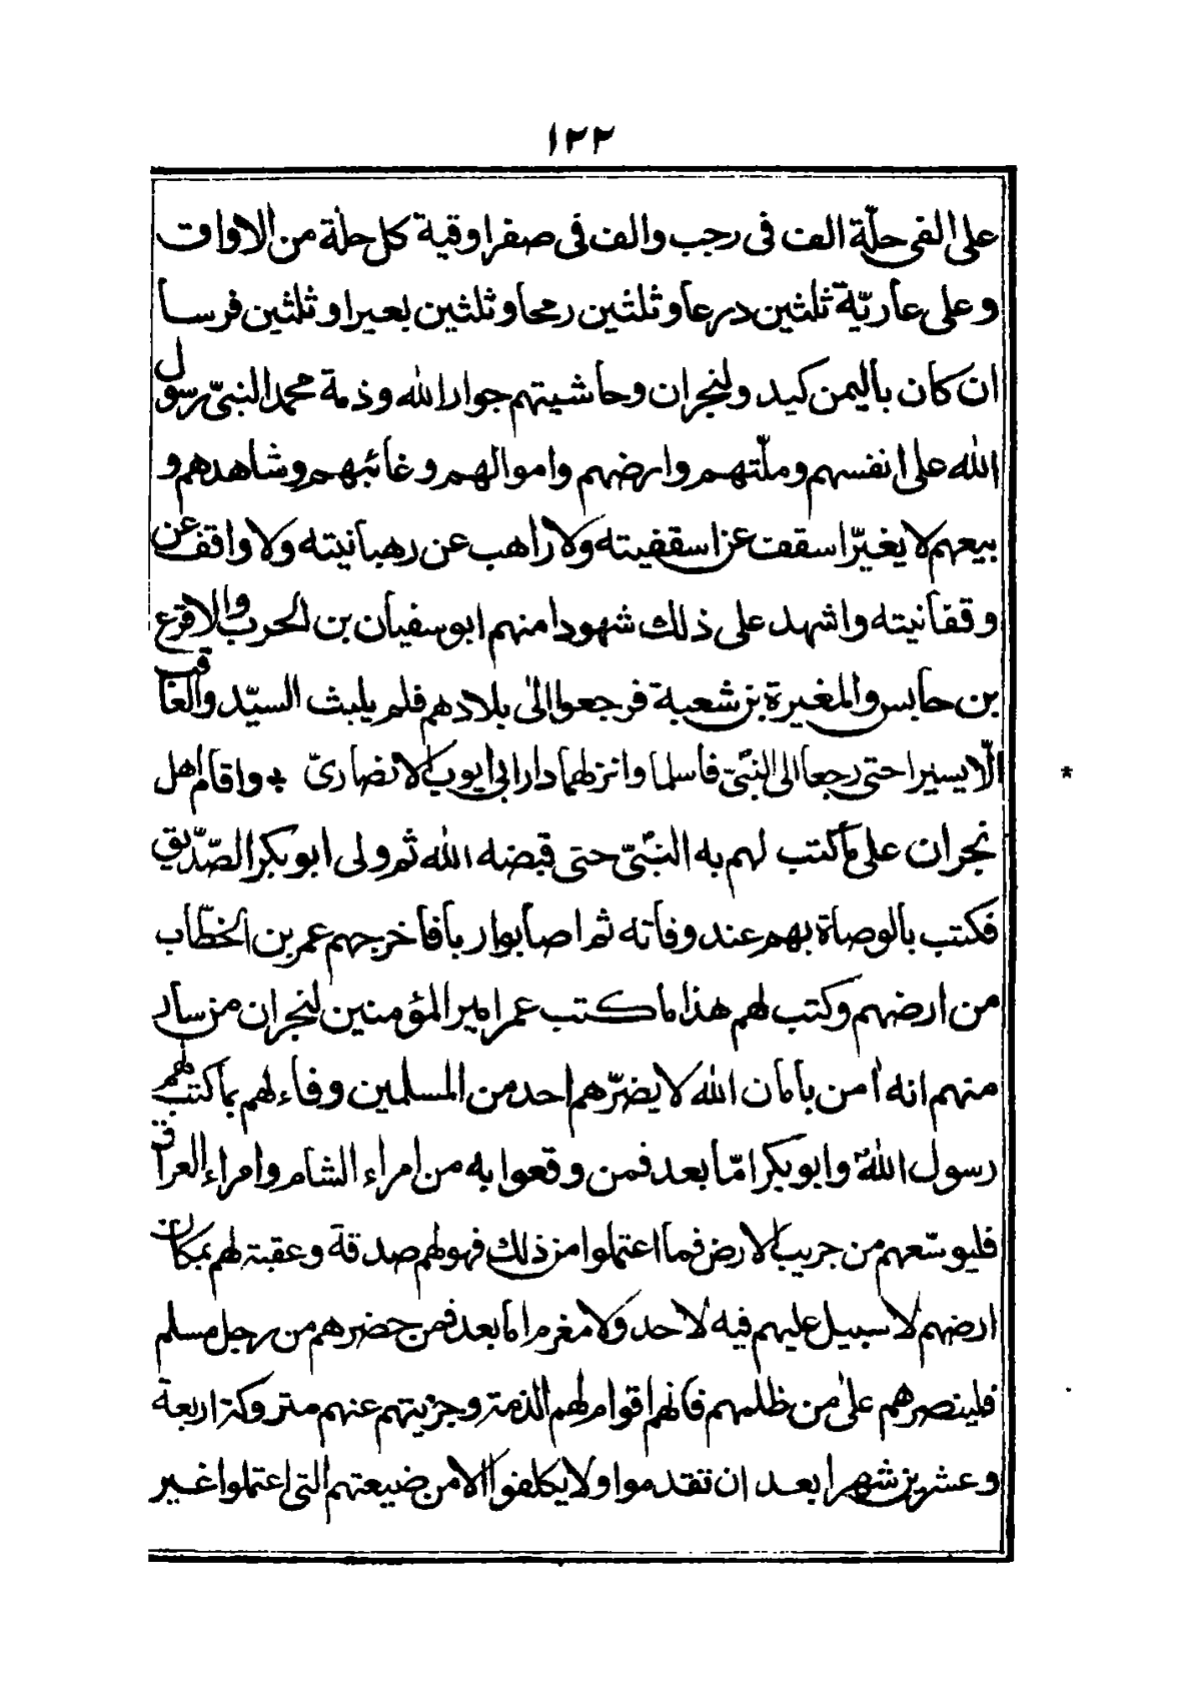 ١٢٢
على الفى حلّة الف فى رجب والف فى صفر اوقية كل حلة من الاواق
وعلى عاريّة ثلثين درعا وثلثين رمحا وثلثين بعيرا وثلثين فرسا
ان كان باليمن كيد ولنجران وحاشيتهم جوار الله وذمة محمد النبىّ رسول
الله على انفسهم وملّتهم وارضهم واموالهم وغائبهم وشاهدهم و
بيعهم لا يغيّر اسقف عن اسقفيته ولا راهب عن رهبانيته ولا واقف عن
وقفانيته واشهد على ذلك شهودا منهم ابو سفيان بن الحرب والاقرع
بن حابس والمغيرة بن شعبة فرجعوا الى بلادهم فلم يلبث السيّد والعاقب
الّا يسيرا حتى رجعا الى النبىّ فاسلما وانزلهما دار ابى ايوب الانصارىّ * واقام اهل
نجران على ما كتب لهم به النبىّ حتى قبضه الله ثم ولى ابو بكر الصّدّيق
فكتب بالوصاة بهم عند وفاته ثم اصابوا ربا فاخرجهم عمر بن الخطّاب
من ارضهم وكتب لهم هذا ما كتب عمر امير المؤمنين لنجران من سار
منهم انه امن بامان الله لا يضرّهم احد من المسلمين وفاء لهم بما كتب لهم
رسول الله وابو بكر امّا بعد فمن وقعوا به من امراء الشام وامراء العراق
فليوسّعهم من جريب الارض فما اعتملوا من ذلك فهو لهم صدقة وعقبة لهم بمكان
ارضهم لا سبيل عليهم فيه لاحد ولا مغرم اما بعد فمن حضرهم من رجل مسلم
فلينصرهم على من ظلمهم فانهم اقوام لهم الذمة وجزيتهم عنهم متروكة اربعة
وعشرين شهرا بعد ان تقدموا ولا يكلفوا الا من ضيعتهم التى اعتملوا غير
*